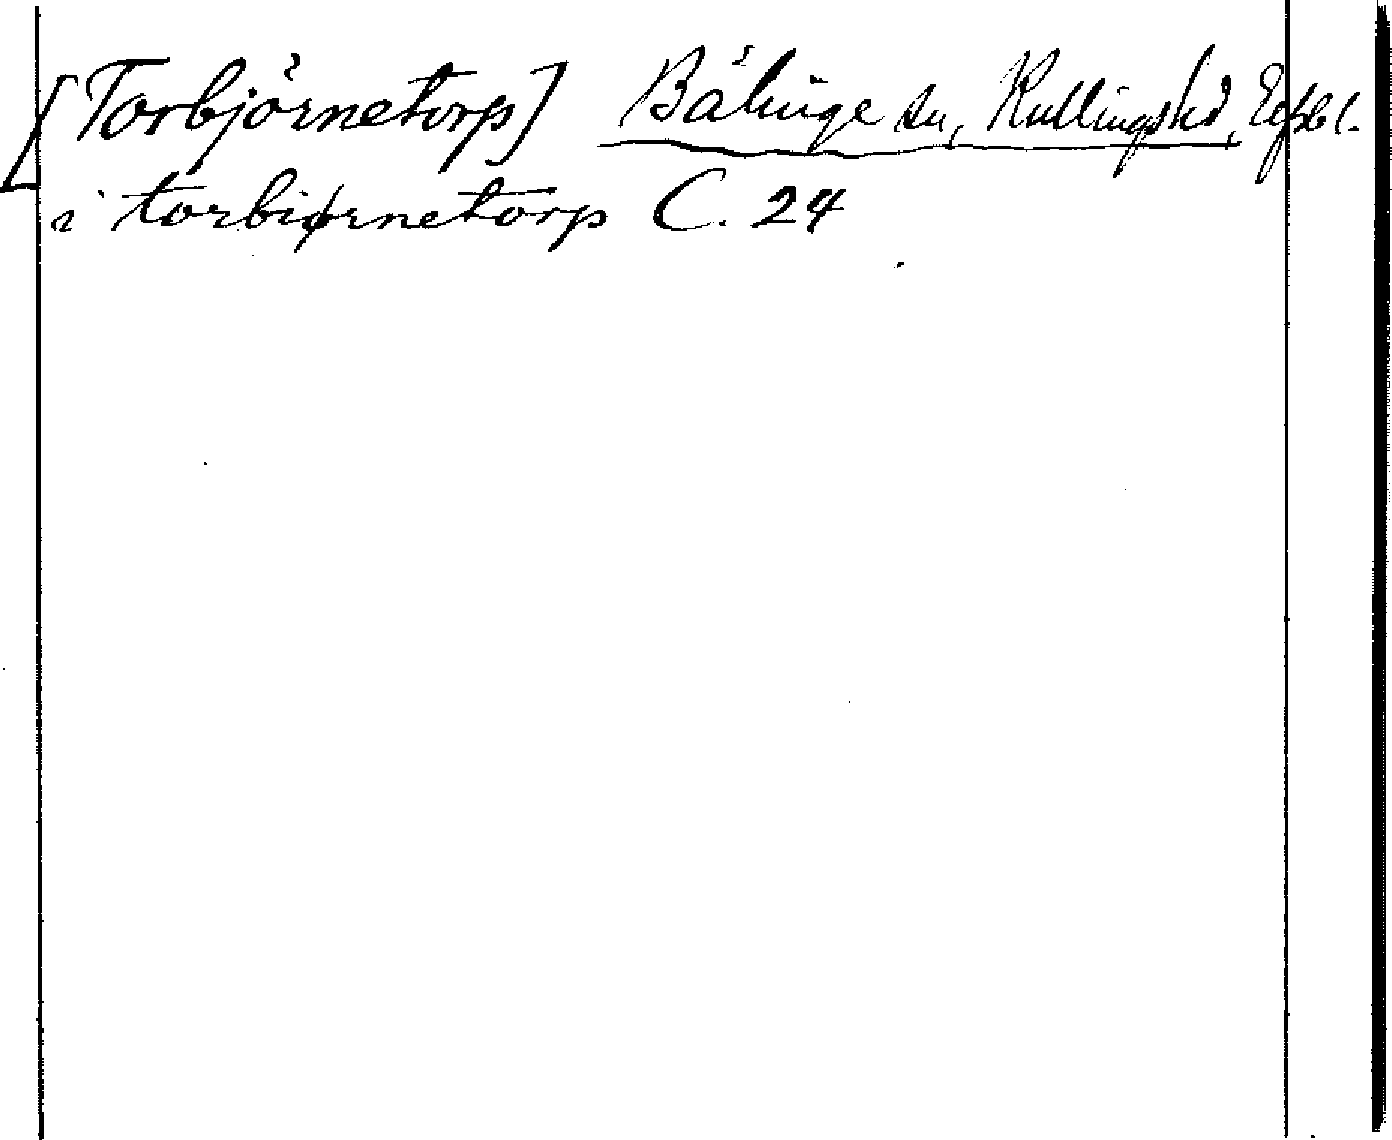 [Torbjörnetorp] Bälinge sn, Kullings hd, Efsbl.
i torbiørnetorp C. 24